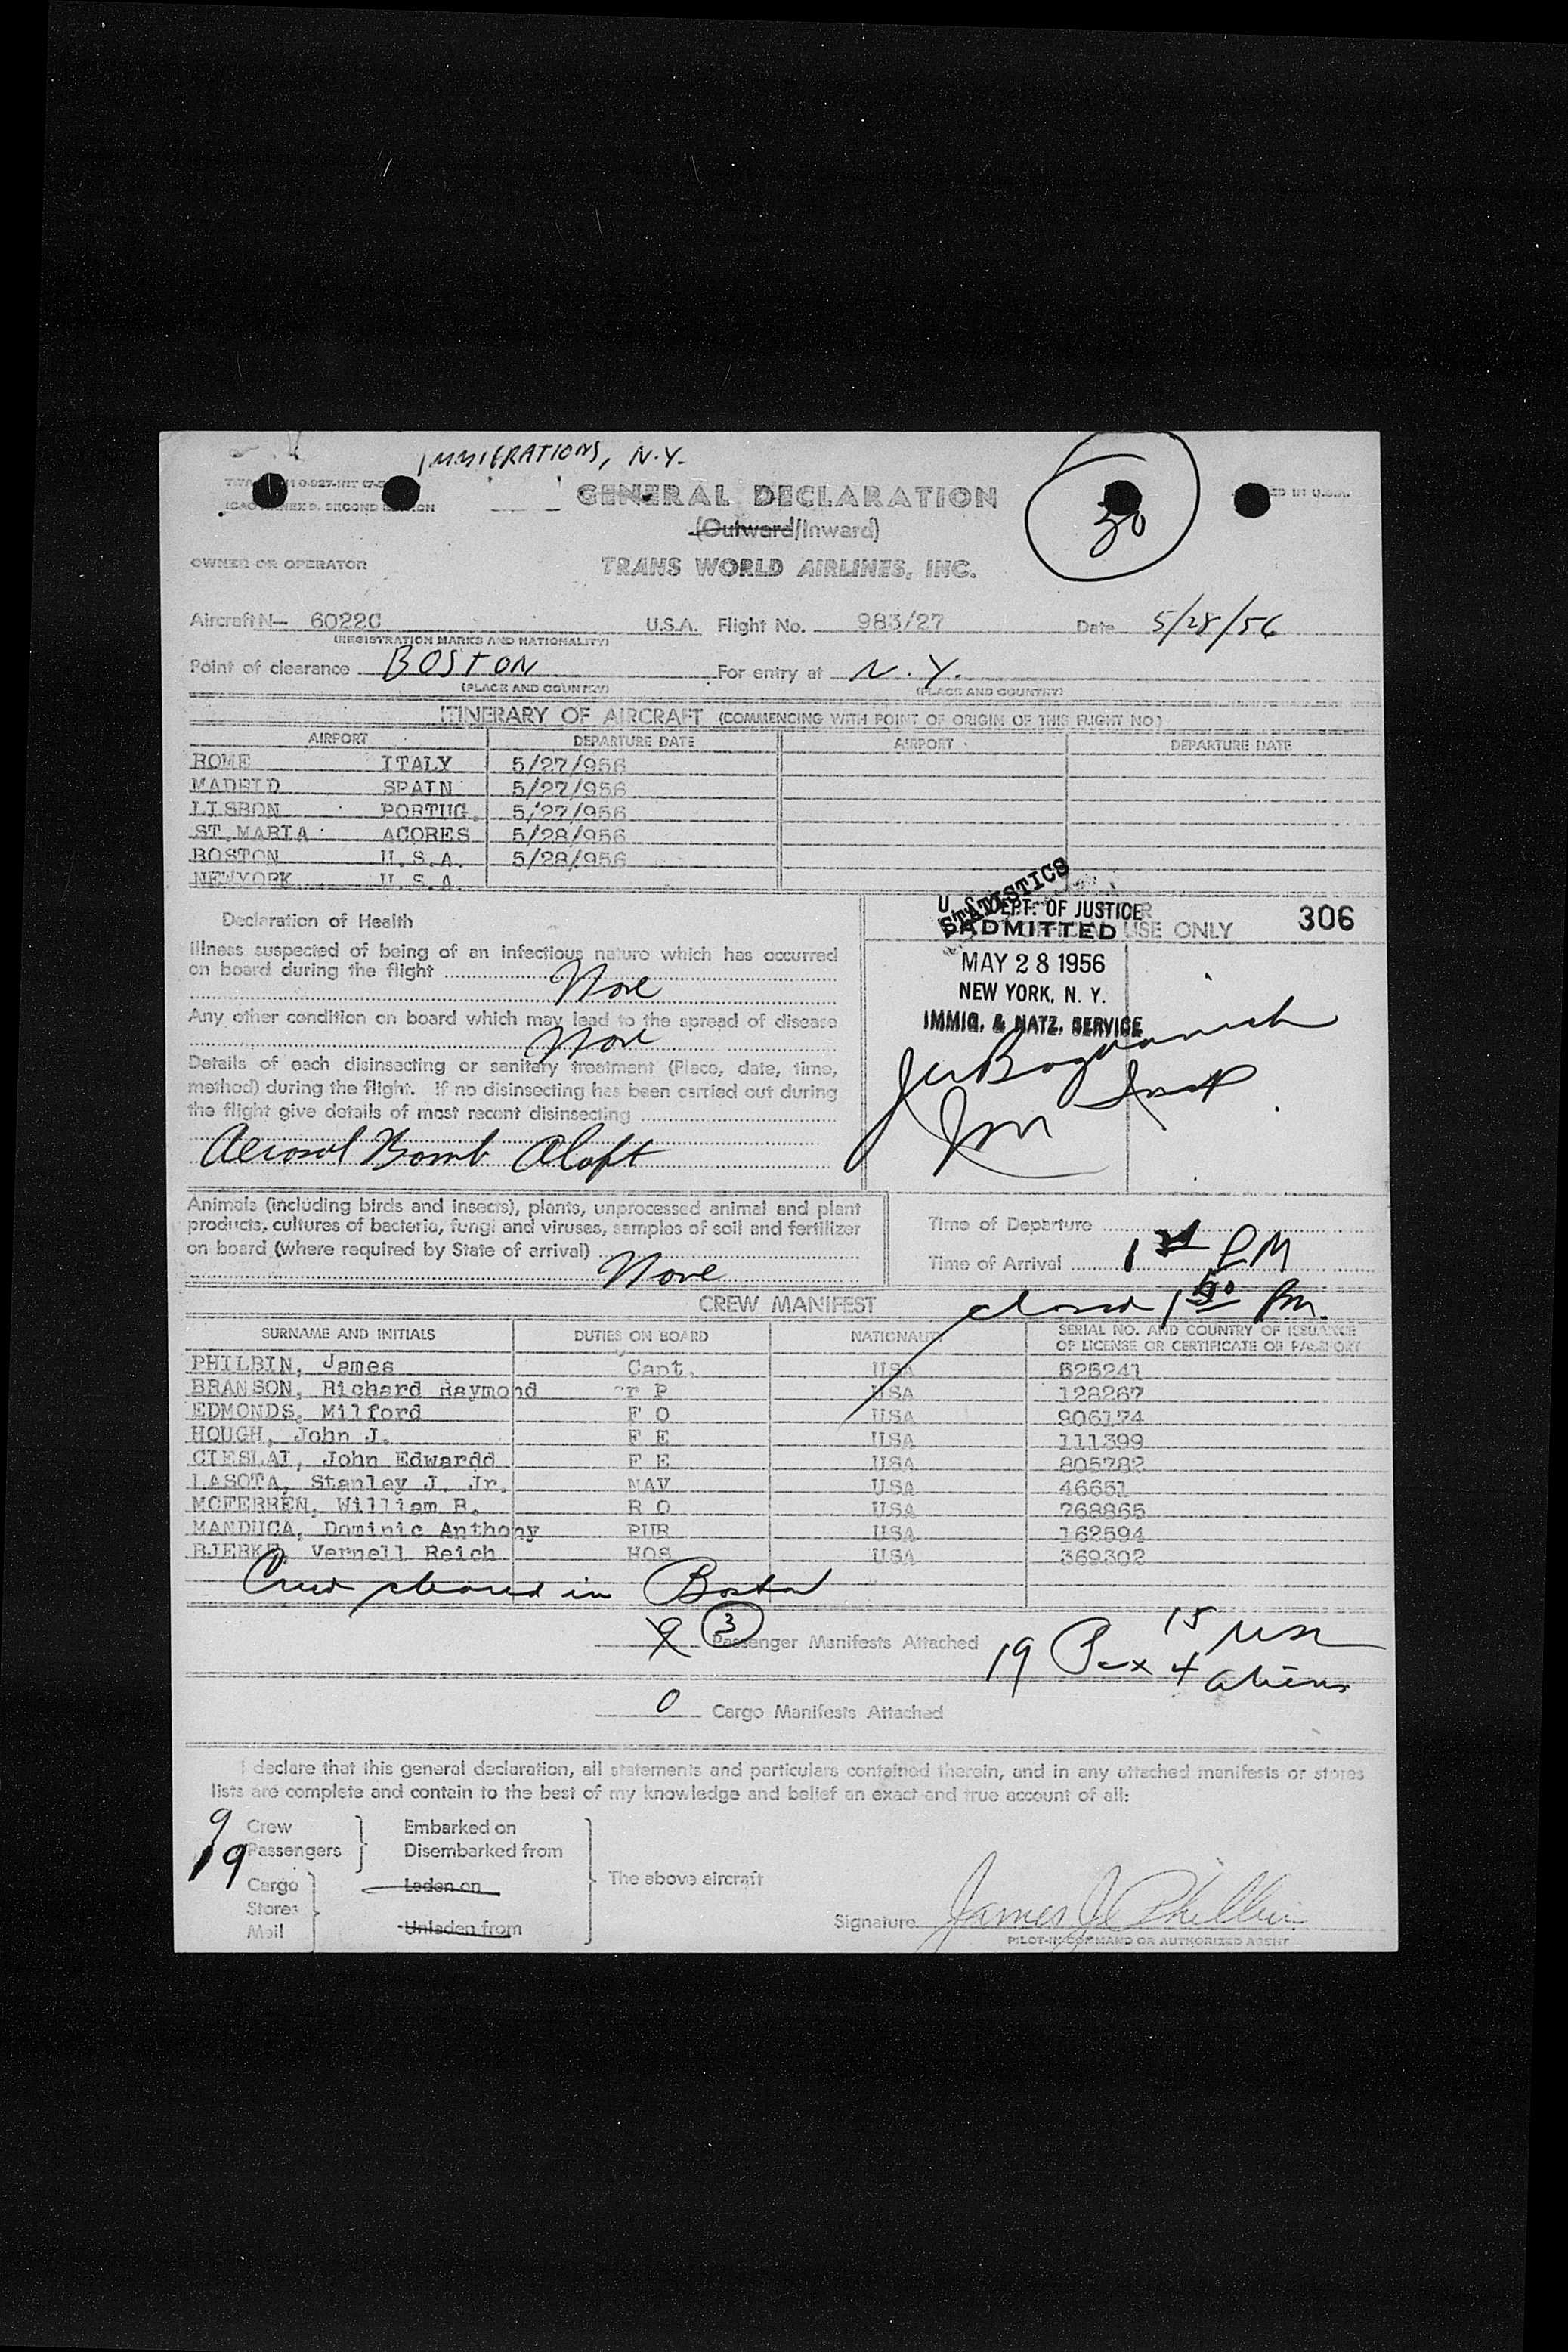 IMMIGRATIONS, N.Y.
GENERAL DECLARATION
(Outward/Inward)
30
OWNER OR OPERATOR
TRANS WORLD AIRLINES, INC.
Aircraft N— 6022C U.S.A. Flight No. 983/27 Date 5/28/56
(REGISTRATION MARKS AND NATIONALITY)
Point of clearance BOSTON For entry at N.Y.
(PLACE AND COUNTRY) (PLACE AND COUNTRY)
ITINERARY OF AIRCRAFT (COMMENCING WITH POINT OF ORIGIN OF THIS FLIGHT NO.)
AIRPORT DEPARTURE DATE AIRPORT DEPARTURE DATE
ROME ITALY 5/27/956
MADRID SPAIN 5/27/956
LISBON PORTUG. 5/27/956
ST.MARIA ACORES 5/28/956
BOSTON U.S.A. 5/28/956
NEWYORK U.S.A.
Declaration of Health
Illness suspected of being of an infectious nature which has occurred
on board during the flight None
Any other condition on board which may lead to the spread of disease
None
Details of each disinsecting or sanitary treatment (Place, date, time,
method) during the flight. If no disinsecting has been carried out during
the flight give details of most recent disinsecting
Aerosol Bomb Aloft
STATISTICS
U. S. DEPT. OF JUSTICE
ADMITTED USE ONLY 306
MAY 28 1956
NEW YORK, N. Y.
IMMIG. & NATZ. SERVICE
Animals (including birds and insects), plants, unprocessed animal and plant
products, cultures of bacteria, fungi and viruses, samples of soil and fertilizer
on board (where required by State of arrival)
None
Time of Departure
Time of Arrival 1 PM
closed 1 50 PM.
CREW MANIFEST
SURNAME AND INITIALS DUTIES ON BOARD NATIONALITY SERIAL NO. AND COUNTRY OF ISSUANCE
OF LICENSE OR CERTIFICATE OR PASSPORT
PHILBIN, James Capt. USA 526241
BRANSON, Richard Raymond r P USA 128267
EDMONDS, Milford F O USA 906174
HOUGH, John J. F E USA 111399
CIESLAI, John Edwardd F E USA 805782
LASOTA, Stanley J. Jr. NAV USA 46651
MCFERREN, William B. R O USA 768865
MANDUCA, Dominic Anthony PUR USA 162594
BJERKE, Vernell Reich HOS USA 369302
Crew cleared in Boston
3 Passenger Manifests Attached 19 Pax 15 USA
4 aliens
0 Cargo Manifests Attached
I declare that this general declaration, all statements and particulars contained therein, and in any attached manifests or stores
lists are complete and contain to the best of my knowledge and belief an exact and true account of all:
9 Crew Embarked on
19 Passengers Disembarked from
The above aircraft
Cargo Laden on
Stores
Mail Unladen from
Signature James J Philbin
PILOT-IN-COMMAND OR AUTHORIZED AGENT